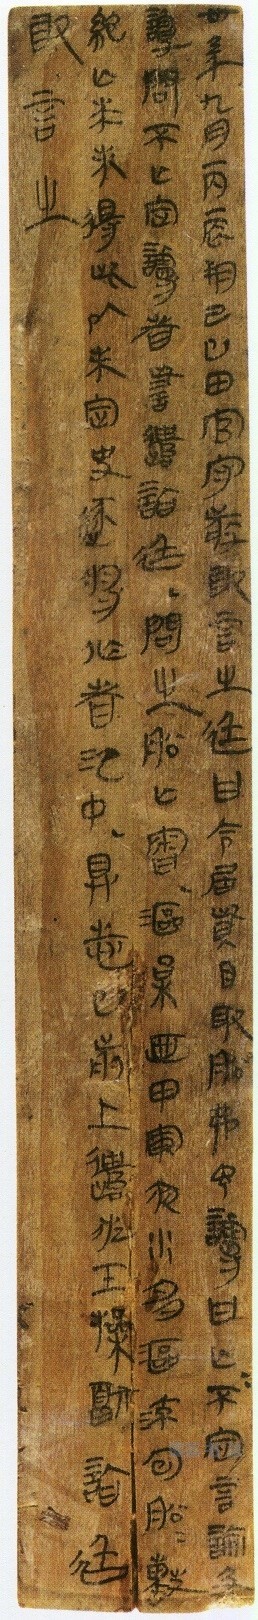 卅年九月丙辰朔己巳田官守敬敢言之廷曰令居貲目取船弗予謾曰亡=不定言論及
讂問不亡定謾者訾遣詣廷問之船亡審漚枲迺甲寅夜水多漚流包船=繫
絕亡求未得此以未定史逐將作者氾中具志已前上遣佐壬操副詣廷
敢言之